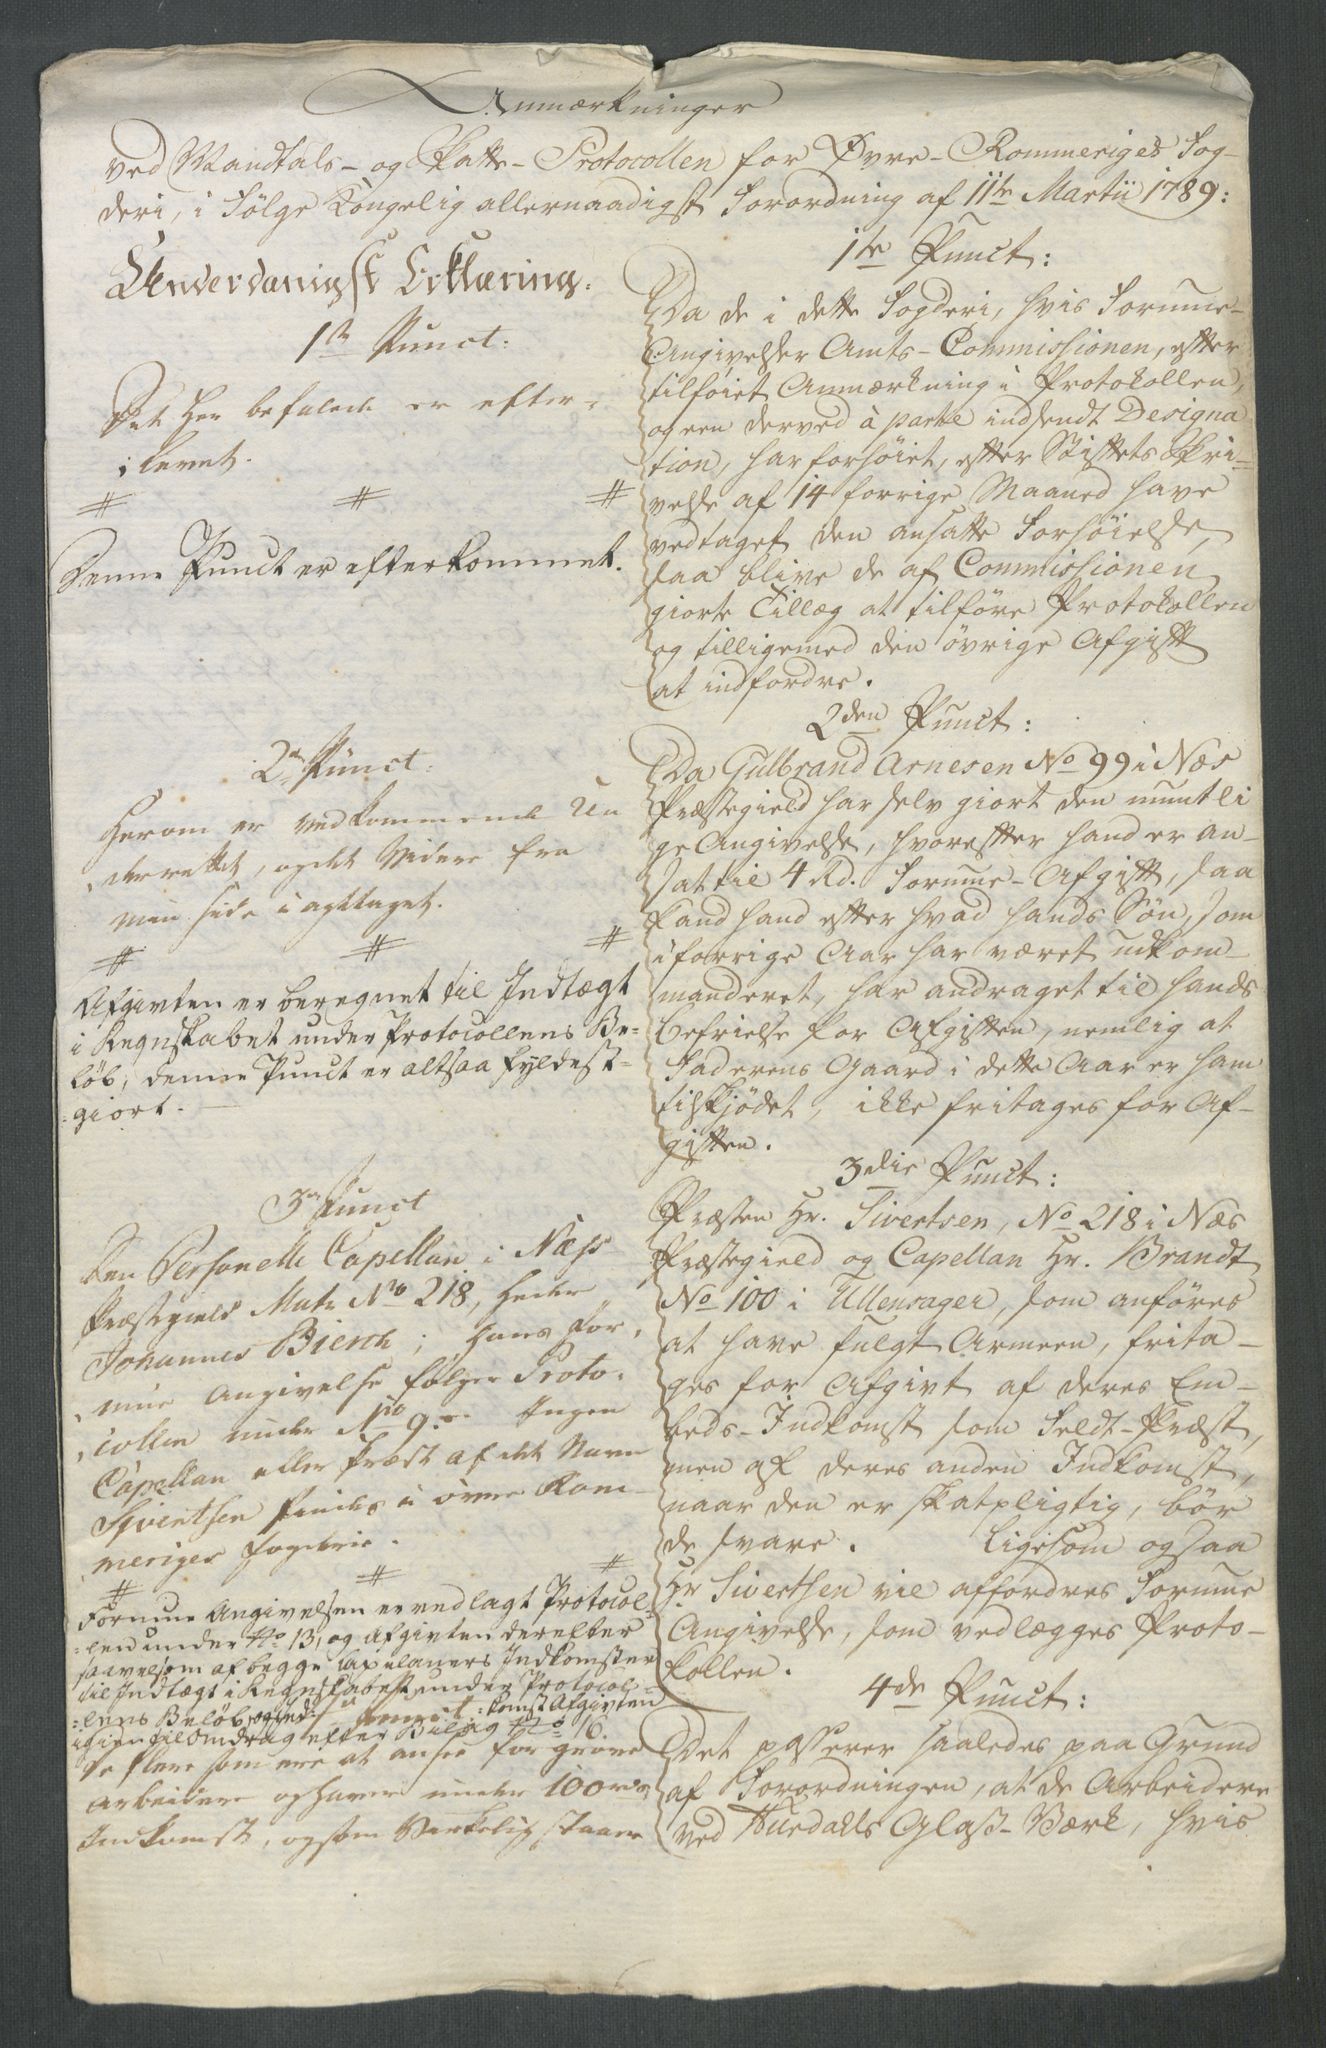 Anmærkninger
ved Mandtals- og Skatte-Protocollen for Øvre-Rommeriges Fog-
deri, i Følge Kongelig allernaadigst Forordning af 11te Martii 1789:
Underdanigst Erklæring.
1te Punct.
Det her befalede er efter-
levet.
Denne Punct er efterkommet.
2den Punct.
Herom er vedkommende Un
derrettet, og det Videre fra
min side iagttaget.
Afgivten er beregnet til Indtægt
i Regnskabet under Protocollens Be-
løb, denne Punct er altsaa fyldest-
giort.
3die Punct
Den Personelle Capellan i Næss
Præstegield Matr No 218, heder
Johannes Bierch; hans For-
mue Angivelse følger Proto-
collen under No 9. Ingen
Capellan eller Præst af det Navn
Siventsen findes i øvre Rom-
meriges Fogderie.
Formue Angivelsen er vedlagt Protocol-
len under No 13, og Afgivten derefter
saavelsom af begge Capelaners Indkomster
til Indtægt i Regnskabet under Protocol-
lens Beløb, og Ind- komst Afgivten
igien til Omdrag efter Bilag No 16.
4de Punct.
De flere som ere at ansee for grove
Arbeidere og have under 100 rd
Indkomst, og som Værkelig staaer
1te Punct:
Da de i dette Fogderi, hvis Formue-
Angivelser Amts-Commissionen, efter
tilføiet Anmærkning i Protokollen,
og een derved à parte indsendt Designa
tion, har forhøiet, efter Stiftets Skri-
velse af 14 forrige Maaned have
vedtaget den ansatte Forhøielse,
saa blive de af Commissionen
giorte Tillæg at tilføre Protokollen
og tilligemed den øvrige Afgift
at indfordre.
2den Punct:
Da Gulbrand Arnesen No 99 i Næs
Præstegield har selv giort den mundtli
ge Angivelse, hvorefter hand er an-
sat til 4 Rd. Formue-Afgift, saa
kand hand efter hvad hands Søn, som
i forrige Aar har været udkom-
manderet, har andraget til hands
befrielse for Afgiften, nemlig at
Faderens Gaard i dette Aar er ham
tilskjødet, ikke fritages for Af-
giften.
3die Punct:
Præsten Hr. Sivertsen, No 218 i Næs
Præstegield og Capellan Hr. Brandt
No 100 i Ullensager, som anføres
at have fulgt Armeen, frita-
ges for Afgivt af deres Em-
beds-Indkomst som Feldt-Præst,
men af deres anden Indkomst,
naar den er skatpligtig, bør
de svare. Ligesom ogsaa
Hr Sivertsen vil affordres Formue
Angivelse, som vedlægges Proto-
kollen.
4de Punct:
Det passerer saaledes paa Grund
af Forordningen, at de Arbeidere
ved Hurdahls Glass-Værk, hvis